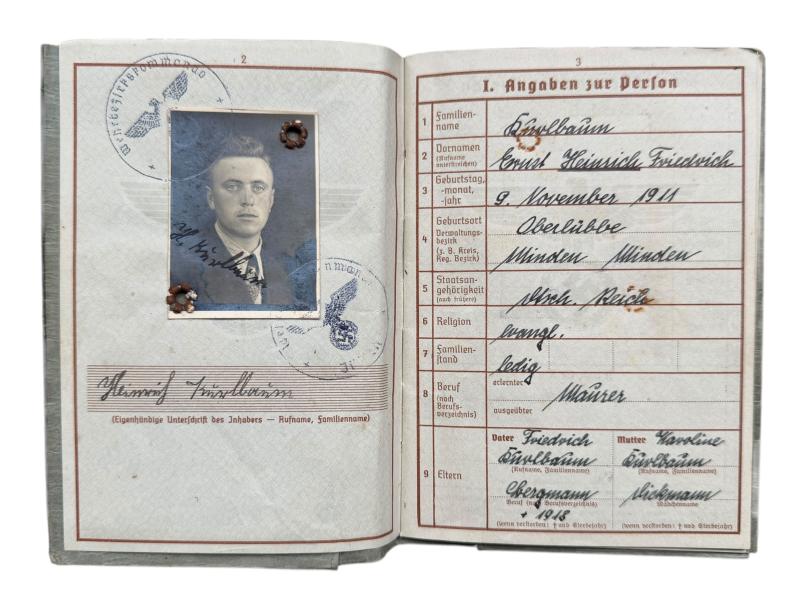 2
Wehrbezirkskommando
H. Kurlbaum
Heinrich Kurlbaum
(Eigenhändige Unterschrift des Inhabers — Rufname, Familienname)
3
I. Angaben zur Person
1 Familien-
name
Kurlbaum
2 Vornamen
(Rufname
unterstreichen)
Ernst Heinrich Friedrich
3 Geburtstag,
-monat,
-jahr
9. November 1911
4 Geburtsort
Verwaltungs-
bezirk
(z. B. Kreis,
Reg. Bezirk)
Oberlübbe
Minden Minden
5 Staatsan-
gehörigkeit
(auch frühere)
Dtsch. Reich
6 Religion
evangl.
7 Familien-
stand
ledig
8 Beruf
(nach
Berufs-
verzeichnis)
erlernter
Maurer
ausgeübter
9 Eltern
Vater Friedrich
Kurlbaum
(Rufname, Familienname)
Bergmann
Beruf (nach Berufsverzeichnis)
+ 1918
(wenn verstorben: † und Sterbejahr)
Mutter Karoline
Kurlbaum
(Rufname, Familienname)
Dickmann
Mädchenname
(wenn verstorben: † und Sterbejahr)